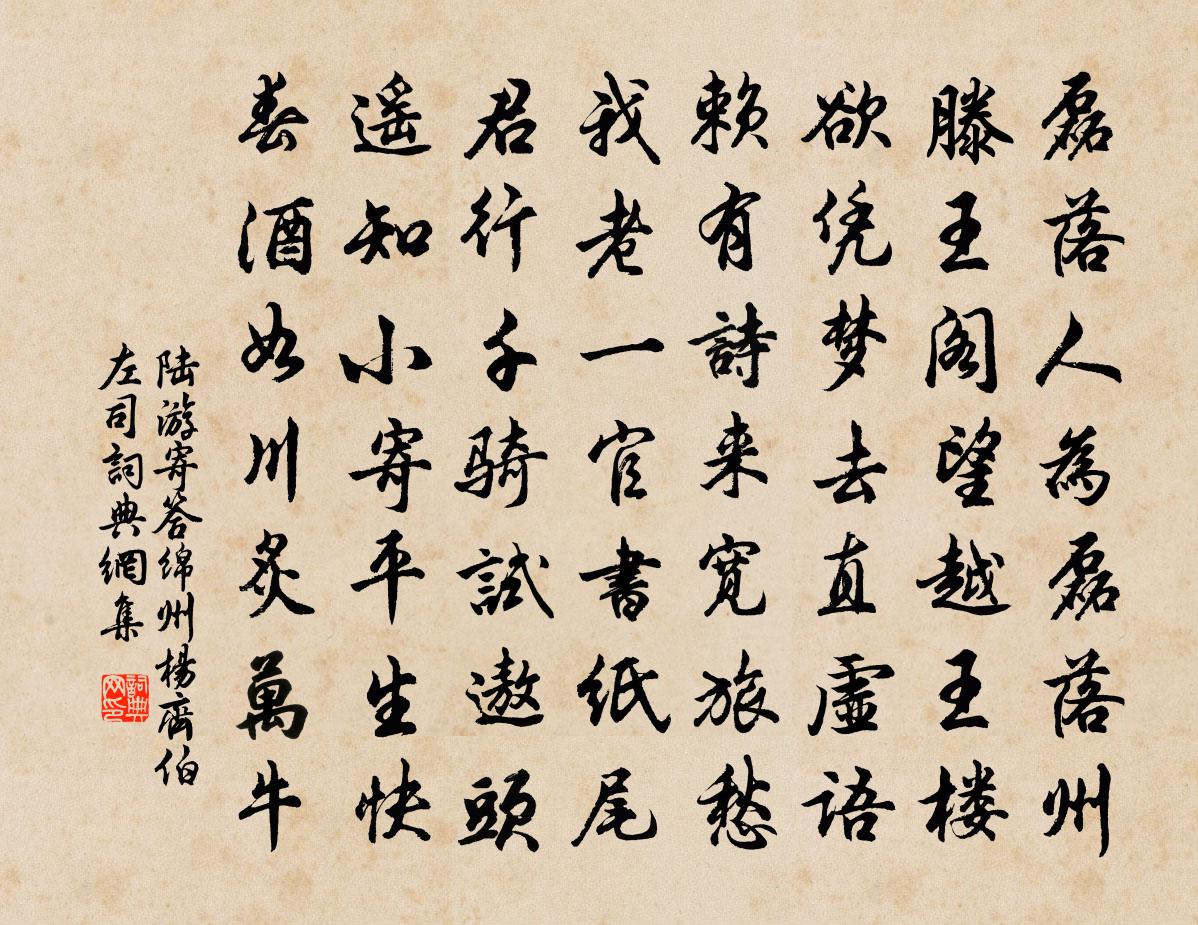 磊落人為磊落州
滕王阁望越王楼
欲凭梦去直虛语
赖有詩来宽旅愁
我老一官書纸尾
君行千骑試遨頭
遥知小寄平生快
春酒如川炙萬牛
陆游寄答绵州楊齊伯
左司詞典網集
詞典
网印